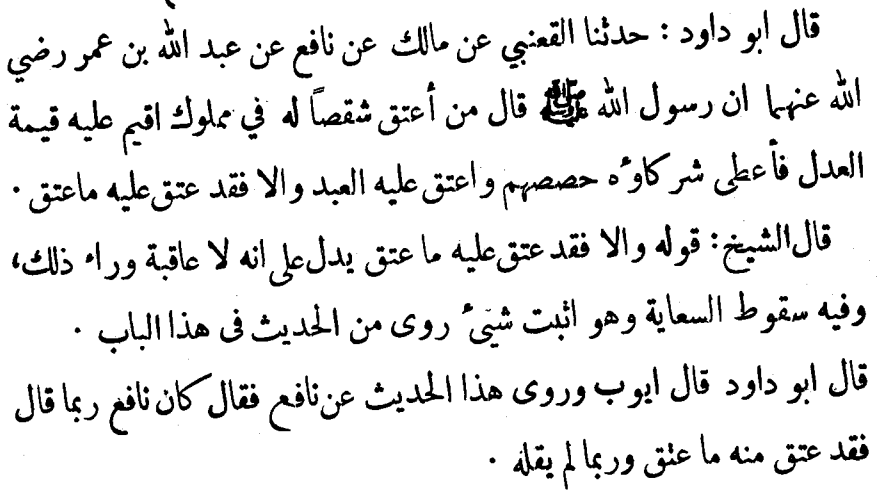 قال ابو داود : حدثنا القعنبي عن مالك عن نافع عن عبد الله بن عمر رضي
الله عنهما ان رسول الله ﷺ قال من أعتق شقصاً له في مملوك اقيم عليه قيمة
العدل فأعطى شركاؤه حصصهم واعتق عليه العبد والا فقد عتق عليه ماعتق .
قال الشيخ : قوله والا فقد عتق عليه ما عتق يدل على انه لا عاقبة وراء ذلك،
وفيه سقوط السعاية وهو اثبت شيئ روى من الحديث فى هذا الباب .
قال ابو داود قال ايوب وروى هذا الحديث عن نافع فقال كان نافع ربما قال
فقد عتق منه ما عتق وربما لم يقله .